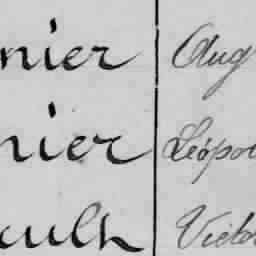 nier Aug
nier Léopol
ault Victo